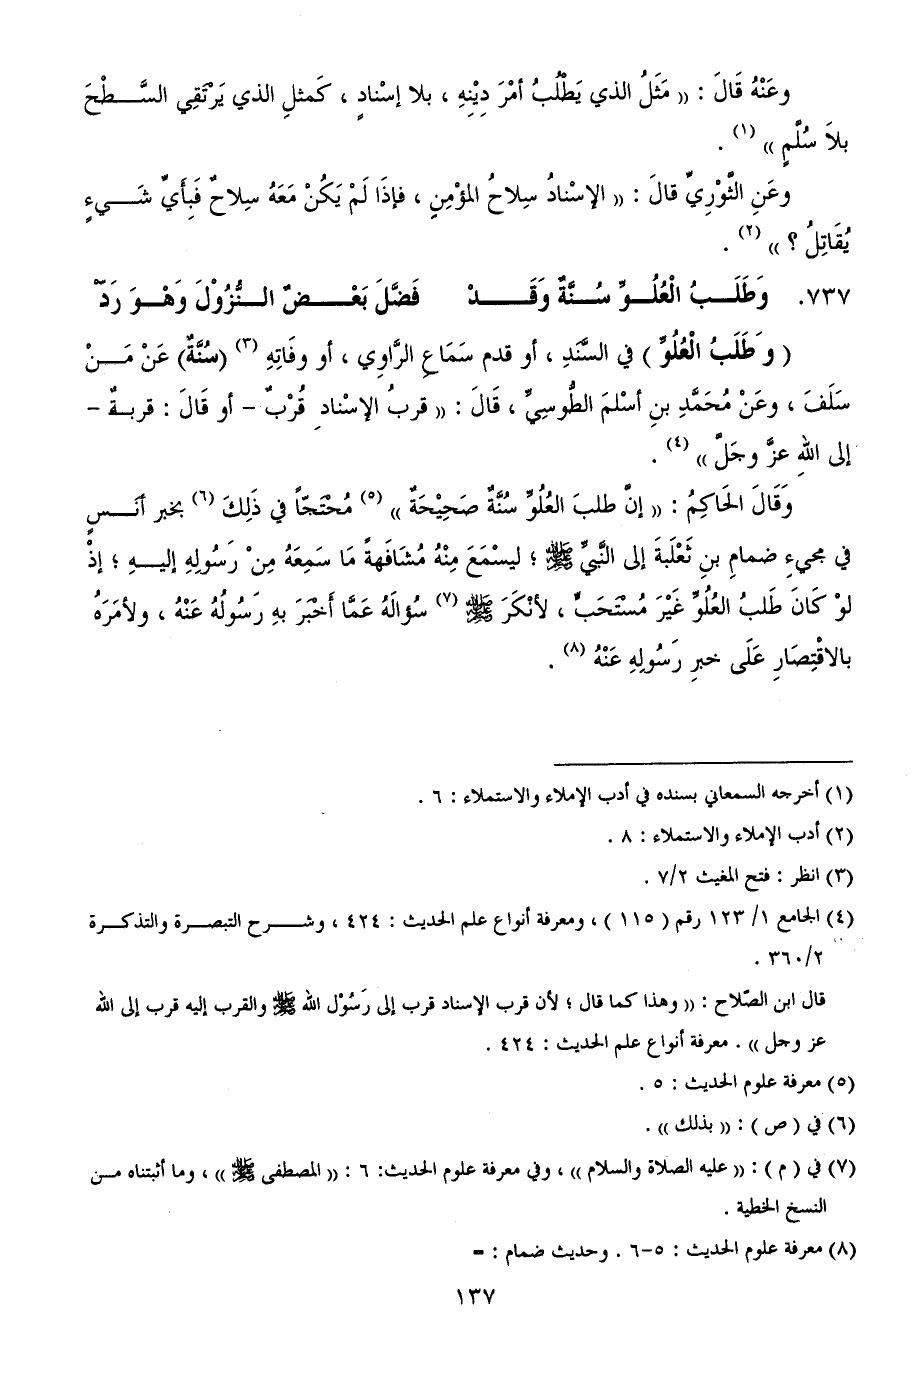 وعَنْهُ قَالَ : (( مَثَلُ الذي يَطْلُبُ أمْرَ دِيْنِهِ ، بلا إسْنادٍ ، كَمثلِ الذي يَرْتَقِي السَّطْحَ
بلاَ سُلَّمٍ )) (١) .
وعَنِ الثَّوْرِيِّ قالَ : (( الإسْنادُ سِلاحُ المؤْمِنِ ، فإذَا لَمْ يَكُنْ مَعَهُ سِلاحٌ فَبِأَيِّ شَيءٍ
يُقَاتِلُ ؟ )) (٢) .
٧٣٧. وَطَلَبُ الْعُلُوِّ سُنَّةٌ وَقَدْ فَضَّلَ بَعْضٌ النُّزُوْلَ وَهْوَ رَدّْ
( وَطَلَبُ الْعُلُوِّ ) في السَّنَدِ ، أو قدم سَمَاعِ الرَّاوِي ، أو وفَاتِهِ (٣) (سُنَّةٌ) عَنْ مَنْ
سَلَفَ ، وعَنْ مُحَمَّدِ بنِ أسْلمَ الطُّوسِيِّ ، قَالَ : (( قربُ الإسْنادِ قُرْبٌ - أو قَالَ : قربةٌ -
إلى اللهِ عزَّ وجَلَّ )) (٤) .
وَقَالَ الحَاكِمُ : (( إنَّ طلبَ العُلُوِّ سُنَّةٌ صَحِيْحَةٌ )) (٥) مُحْتَجّاً في ذَلِكَ (٦) بخبرِ أنَسٍ
في مجيءِ ضمامِ بنِ ثَعْلَبَةَ إلى النَّبِيِّ ﷺ ؛ ليسْمَعَ مِنْهُ مُشَافَهةً مَا سَمِعَهُ مِنْ رَسُولِهِ إليهِ ؛ إذْ
لوْ كَانَ طَلبُ العُلُوِّ غَيْرَ مُسْتَحَبٍّ ، لأنْكَرَ ﷺ (٧) سُؤالَهُ عَمَّا أَخْبَرَ بهِ رَسُولُهُ عَنْهُ ، ولأمَرَهُ
بالاقْتِصَارِ عَلَى خبرِ رَسُولِهِ عَنْهُ (٨) .
(١) أخرجه السمعاني بسنده في أدب الإملاء والاستملاء : ٦ .
(٢) أدب الإملاء والاستملاء : ٨ .
(٣) انظر : فتح المغيث ٧/٢ .
(٤) الجامع ١/ ١٢٣ رقم ( ١١٥ ) ، ومعرفة أنواع علم الحديث : ٤٢٤ ، وشرح التبصرة والتذكرة
٣٦٠/٢ .
قال ابن الصّلاح : (( وهذا كما قال ؛ لأن قرب الإسناد قرب إلى رَسُوْل الله ﷺ والقرب إليه قرب إلى الله
عز وجل )) . معرفة أنواع علم الحديث : ٤٢٤ .
(٥) معرفة علوم الحديث : ٥ .
(٦) في ( ص ) : (( بذلك )) .
(٧) في ( م ) : (( عليه الصلاة والسلام )) ، وفي معرفة علوم الحديث: ٦ : (( المصطفى ﷺ )) ، وما أثبتناه من
النسخ الخطية .
(٨) معرفة علوم الحديث : ٥-٦ . وحديث ضمام : =
١٣٧